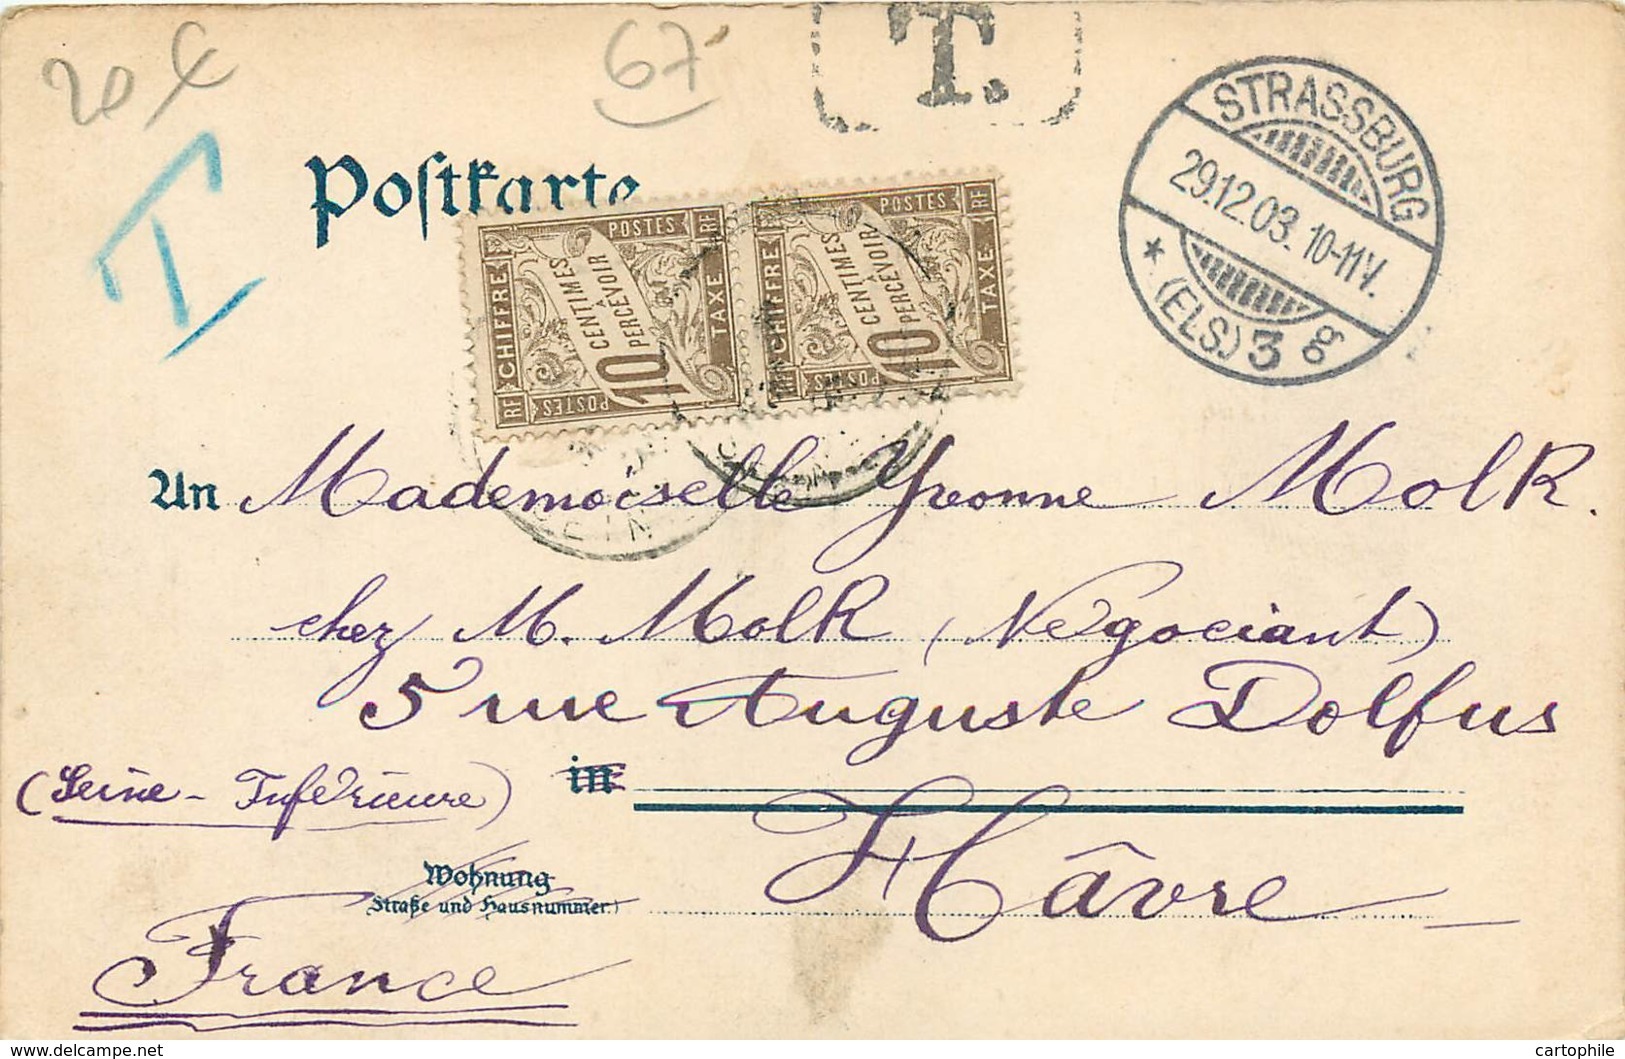 20 €
67
T.
T
Postkarte
STRASSBURG
29.12.03. 10-11V.
* (ELS.) 3 g
RF POSTES RF
CHIFFRE TAXE
10 CENTIMES A PERCEVOIR
POSTES
RF POSTES RF
CHIFFRE TAXE
10 CENTIMES A PERCEVOIR
POSTES
An Mademoiselle Yvonne Molk.
chez M. Molk (Négociant)
5 rue Auguste Dolfus
(Seine-Inférieure) in
Hâvre
Wohnung
Straße und Hausnummer
France
www.delcampe.net
cartophile